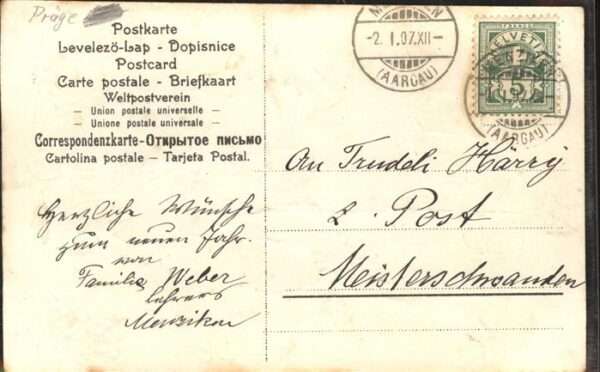 Präge
Postkarte
Levelezö-Lap - Dopisnice
Postcard
Carte postale - Briefkaart
Weltpostverein
— Union postale universelle —
— Unione postale universale —
Correspondenzkarte-Открытое письмо
Cartolina postale — Tarjeta Postal.
-2. I. 07. XII-
(AARGAU)
HELVETIA
5
(AARGAU)
An Trudeli Härry
z. Post
Meisterschwanden
Herzliche Wünsche
zum neuen Jahr.
von
Familie Weber
Lehrers
Menziken